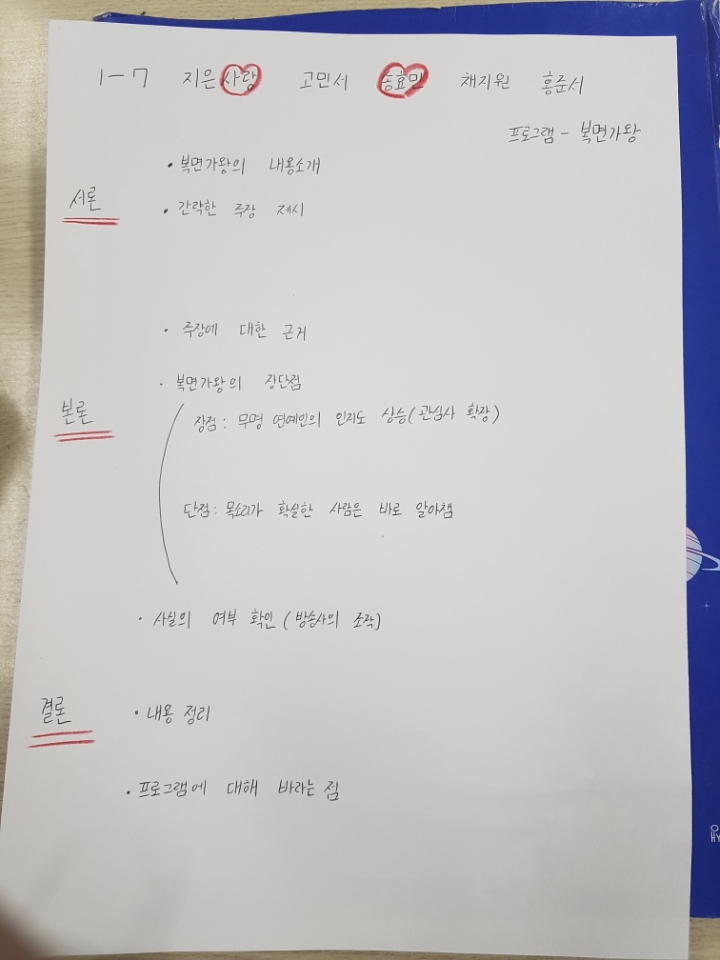 1-7 지은사랑 고민서 송효민 채지원 홍준서
프로그램 - 복면가왕
· 복면가왕의 내용소개
서론
· 간략한 주장 제시
· 주장에 대한 근거
· 복면가왕의 장단점
본론
장점 : 무명 연예인의 인지도 상승(관심사 확장)
단점 : 목소리가 확실한 사람은 바로 알아챔
· 사실의 여부 확인 (방송사의 조작)
결론
· 내용 정리
· 프로그램에 대해 바라는 점